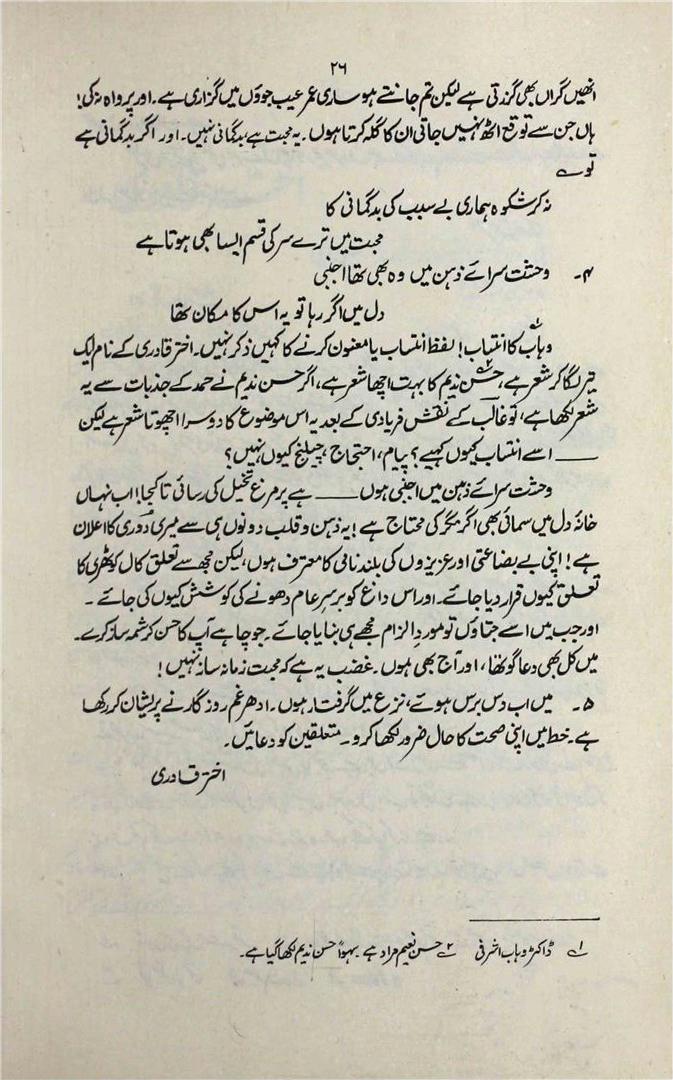 ۲۶
انھیں گراں بھی گزرتی ہے لیکن تم جانتے ہو ساری عمر عیب جوؤں میں گزاری ہے۔ اور پرواہ نہ کی!
ہاں جن سے توقع اٹھ نہیں جاتی ان کا گلہ کرتا ہوں۔ یہ محبت ہے، بدگمانی نہیں۔ اور اگر بدگمانی ہے
تو ؎
نہ کر شکوہ ہماری بے سبب کی بدگمانی کا
محبت میں ترے سر کی قسم ایسا بھی ہوتا ہے
۴۔ وحشت سرائے ذہن میں وہ بھی تھا اجنبی
دل میں اگر رہا تو یہ اس کا مکان تھا
وہاب۱ کا انتساب! لفظ انتساب یا معنون کرنے کا کہیں ذکر نہیں۔ اختر قادری کے نام لیک
تیر لگا کر شعر ہے، حسن ندیم۲ کا بہت اچھا شعر ہے، اگر حسن ندیم نے حمد کے جذبات سے یہ
شعر لکھا ہے، تو غالب کے نقش فریادی کے بعد یہ اس موضوع کا دوسرا اچھوتا شعر ہے لیکن
ــــــ اسے انتساب کیوں کہیے؟ پیام، احتجاج، چیلنج کیوں نہیں؟
وحشت سرائے ذہن میں اجنبی ہوں ــــــ ہے پر مرغ تخیل کی رسائی تا کجا! اب نہاں
خانۂ دل میں سمائی بھی اگر مگر کی محتاج ہے! یہ ذہن و قلب دونوں ہی سے میری دوری کا اعلان
ہے! اپنی بے بضاعتی اور عزیزوں کی بلند نامی کا معترف ہوں، لیکن مجھ سے تعلق کال کوٹھری کا
تعلق کیوں قرار دیا جائے۔ اور اس داغ کو برسرِ عام دھونے کی کوشش کیوں کی جائے۔
اور جب میں اسے جتاؤں تو موردِ الزام مجھے ہی بنایا جائے۔ جو چاہے آپ کا حسن کرشمہ ساز کرے۔
میں کل بھی دعا گو تھا، اور آج بھی ہوں۔ غضب یہ ہے کہ محبت زمانہ ساز نہیں!
۵۔ میں اب دس برس ہوئے، نزع میں گرفتار ہوں۔ ادھر غم روزگار نے پریشان کر رکھا
ہے۔ خط میں اپنی صحت کا حال ضرور لکھا کرو۔ متعلقین کو دعائیں۔
اختر قادری
۱؎ ڈاکٹر وہاب اشرفی ۲؎ حسن نعیم مراد ہے۔ سہواً حسن ندیم لکھا گیا ہے۔